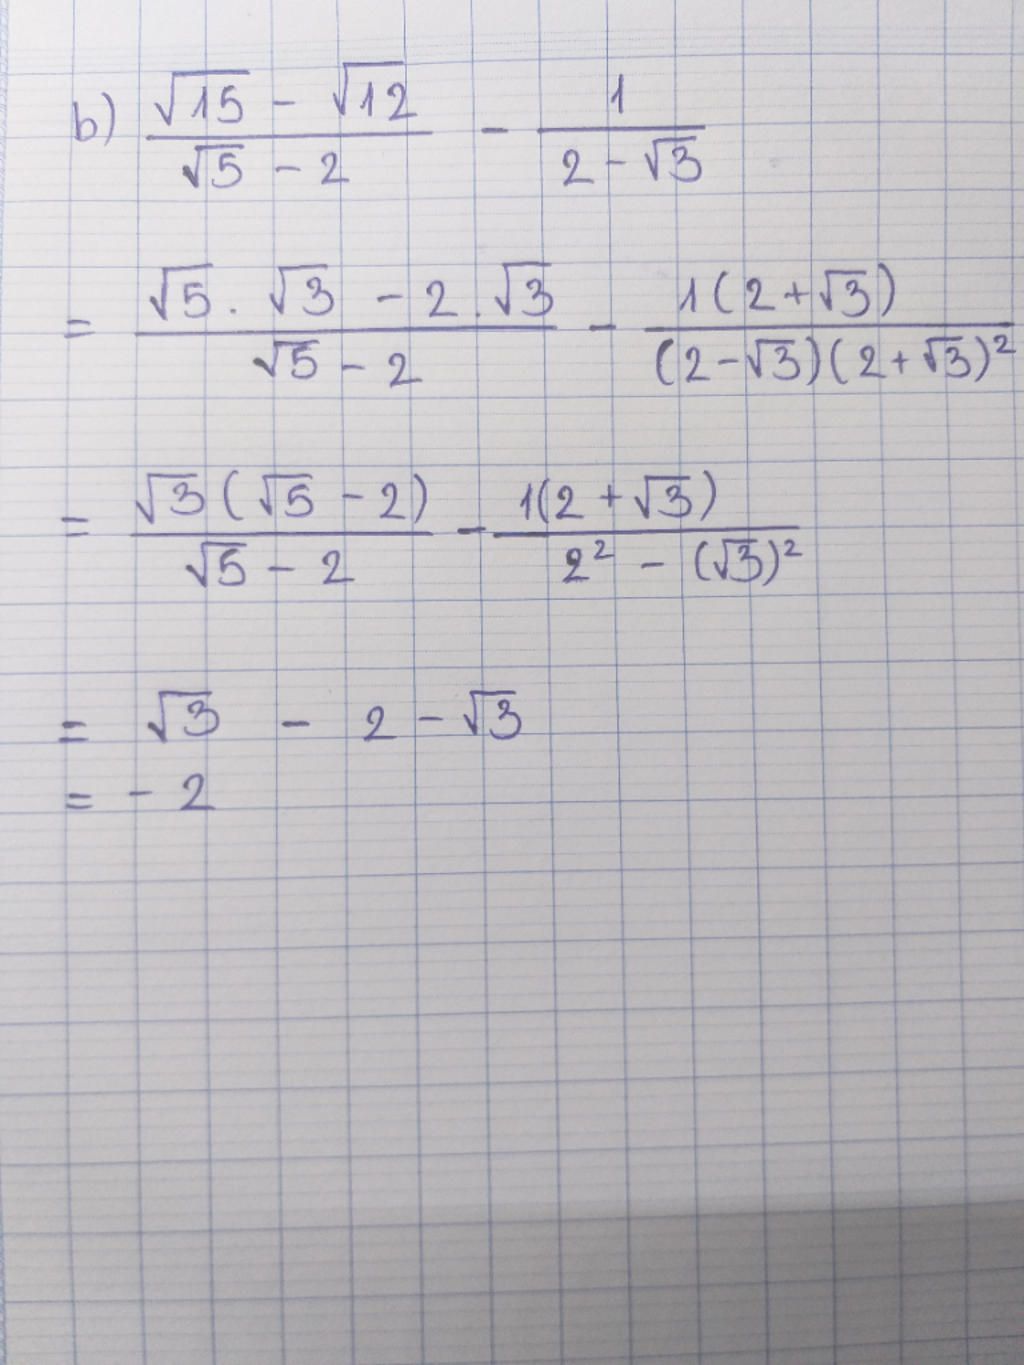 b) (√15 - √12)/(√5 - 2) - 1/(2 - √3)
= (√5 . √3 - 2 . √3)/(√5 - 2) - 1(2 + √3)/((2 - √3)(2 + √3)²)
= √3(√5 - 2)/(√5 - 2) - 1(2 + √3)/(2² - (√3)²)
= √3 - 2 - √3
= - 2